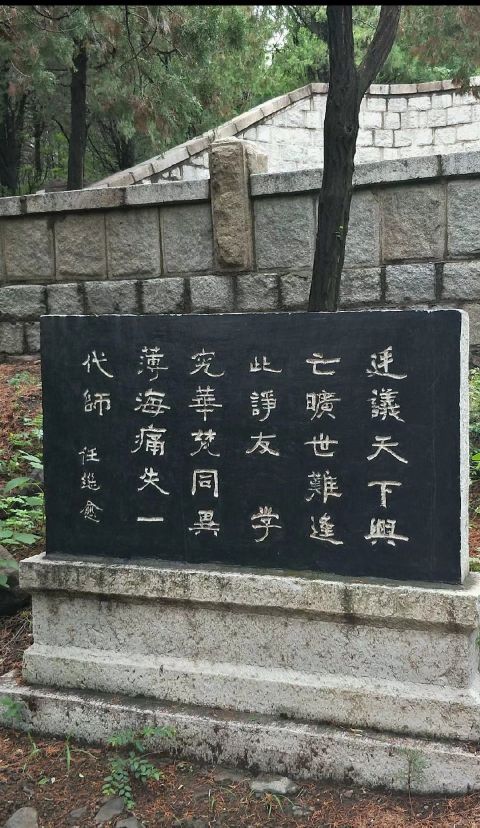 廷議天下興
亡曠世難逢
此諍友 學
究華梵同異
薄海痛失一
代師 任继愈